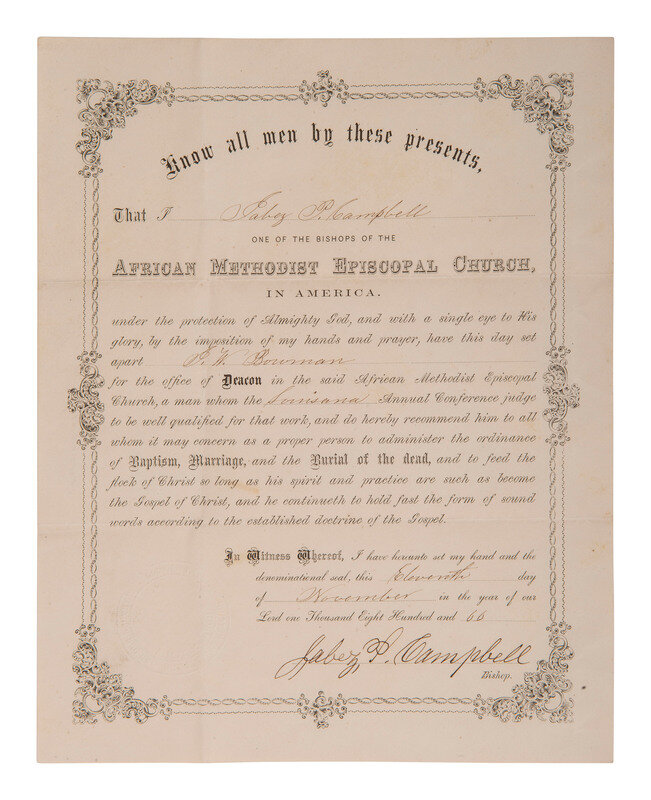 Know all men by these presents,
That I Jabez P. Campbell
ONE OF THE BISHOPS OF THE
AFRICAN METHODIST EPISCOPAL CHURCH,
IN AMERICA.
under the protection of Almighty God, and with a single eye to His
glory, by the imposition of my hands and prayer, have this day set
apart P. W. Bowman
for the office of Deacon in the said African Methodist Episcopal
Church, a man whom the Louisana Annual Conference judge
to be well qualified for that work, and do hereby recommend him to all
whom it may concern as a proper person to administer the ordinance
of Baptism, Marriage, and the Burial of the dead, and to feed the
flock of Christ so long as his spirit and practice are such as become
the Gospel of Christ, and he continueth to hold fast the form of sound
words according to the established doctrine of the Gospel.
In Witness Whereof, I have hereunto set my hand and the
denominational seal, this Eleventh day
of November in the year of our
Lord one Thousand Eight Hundred and 66
Jabez P. Campbell
Bishop.